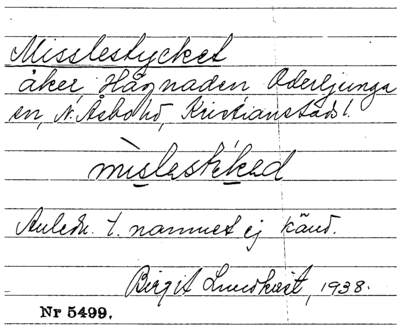 Misslestycket
åker, Hägnaden, Oderljunga
sn, N. Åsbo hd, Kristianstads l.
mìslestýkəd
Anledn. t. namnet ej känd.
Birgit Lundkvist, 1938.
Nr 5499.